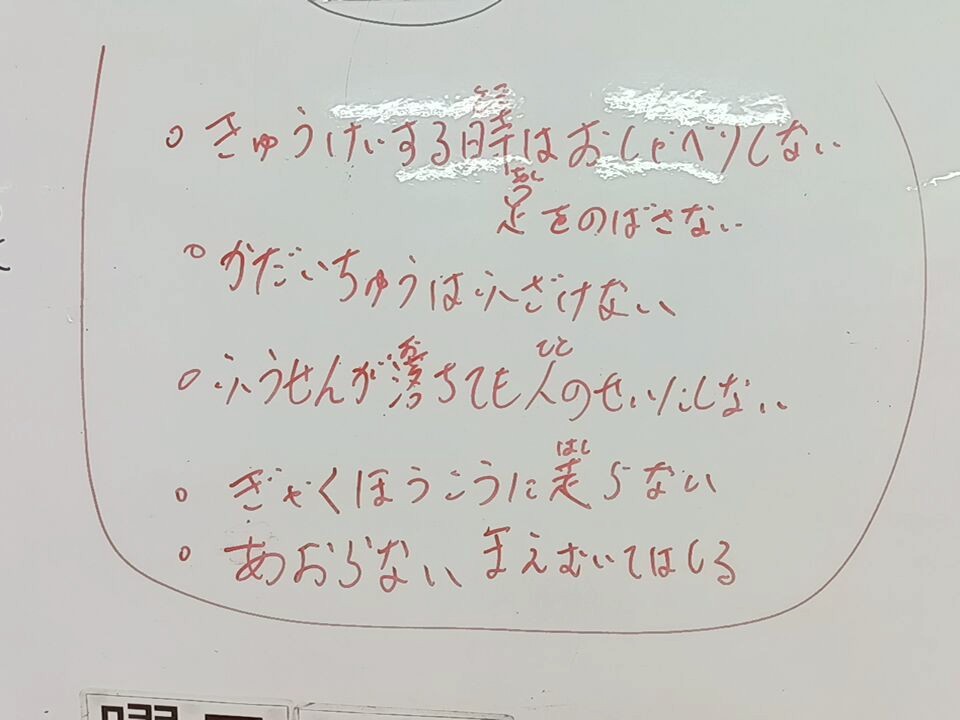 ○ きゅうけいする時はおしゃべりしない
足をのばさない
○ かだいちゅうはふざけない
○ ふうせんが落ちても人のせいにしない
○ ぎゃくほうこうに走らない
○ あおらない まえむいてはしる